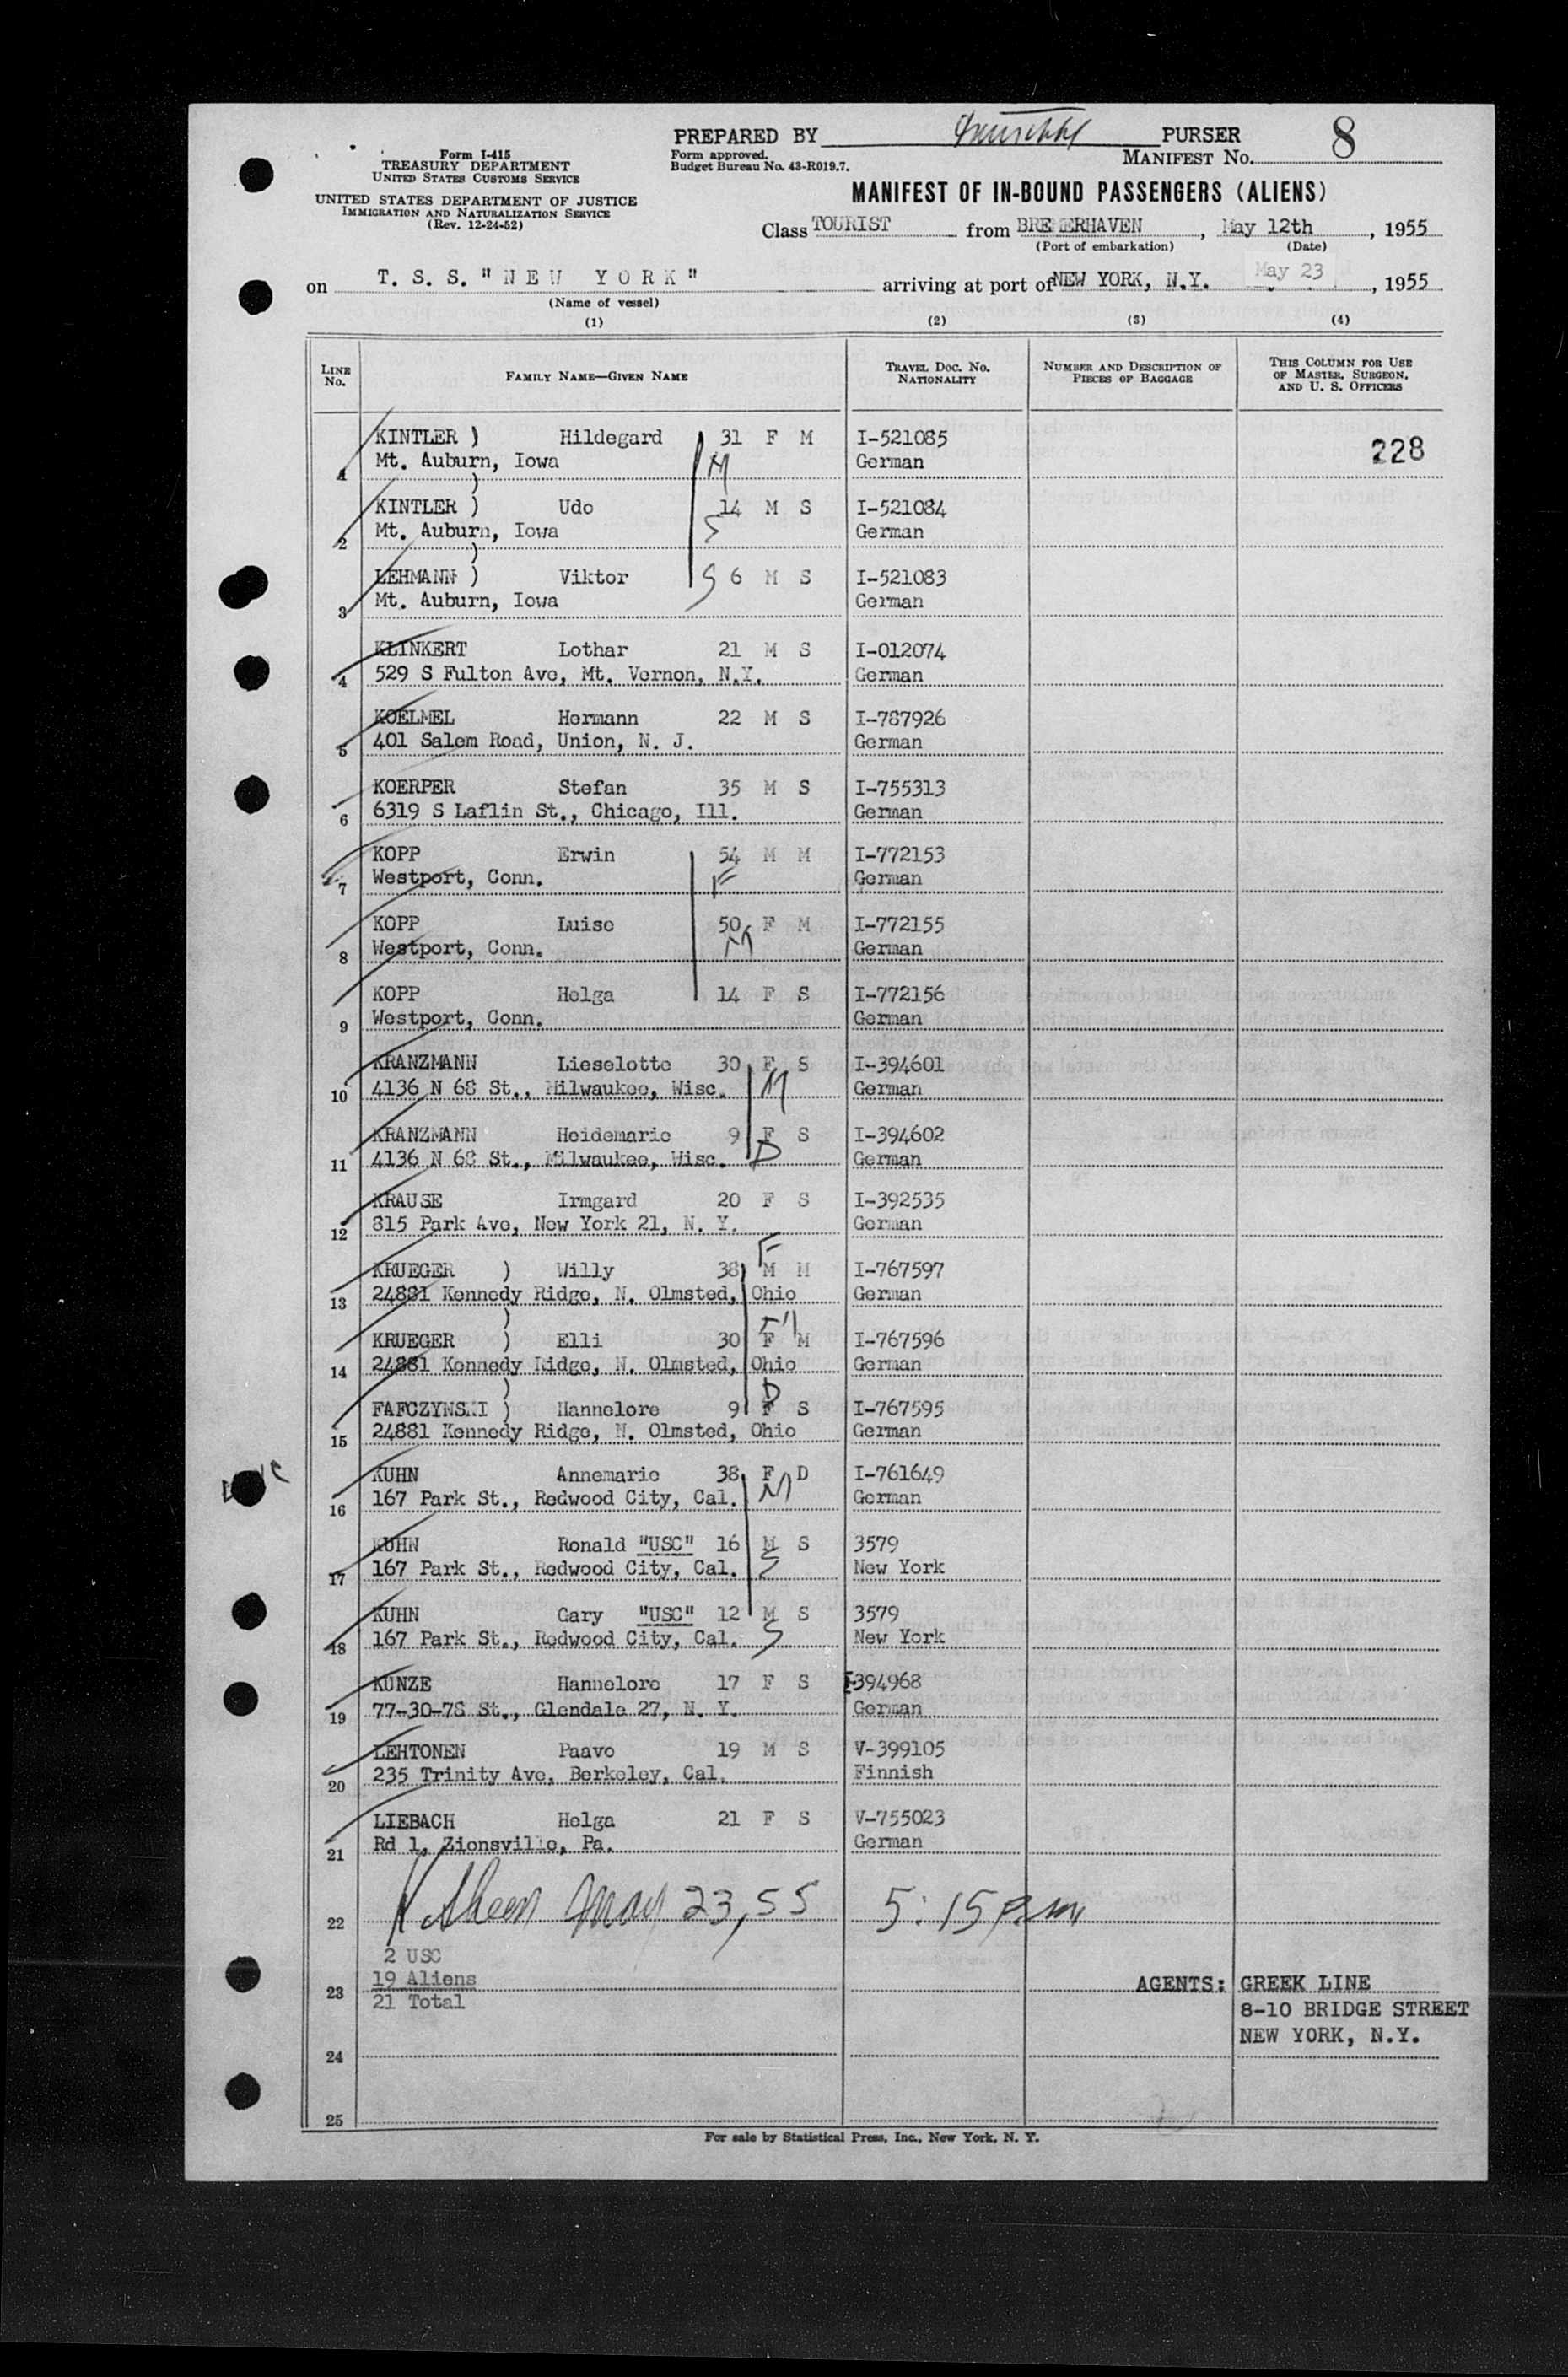 PREPARED BY PURSER
8
Form I-415
TREASURY DEPARTMENT
UNITED STATES CUSTOMS SERVICE
UNITED STATES DEPARTMENT OF JUSTICE
IMMIGRATION AND NATURALIZATION SERVICE
(Rev. 12-24-52)
Form approved.
Budget Bureau No. 43-R019.7.
MANIFEST No.
MANIFEST OF IN-BOUND PASSENGERS (ALIENS)
Class TOURIST from BREMERHAVEN, May 12th, 1955
(Port of embarkation) (Date)
on T. S. S. "NEW YORK" arriving at port of NEW YORK, N.Y. May 23, 1955
(Name of vessel)
(1) (2) (3) (4)
LINE No. FAMILY NAME—GIVEN NAME TRAVEL DOC. NO. NATIONALITY NUMBER AND DESCRIPTION OF PIECES OF BAGGAGE THIS COLUMN FOR USE OF MASTER, SURGEON, AND U. S. OFFICERS
KINTLER ) Hildegard 31 F M I-521085 228
1 Mt. Auburn, Iowa M German
)
KINTLER ) Udo 14 M S I-521084
2 Mt. Auburn, Iowa S German
)
LEHMANN ) Viktor S 6 M S I-521083
3 Mt. Auburn, Iowa German
KLINKERT Lothar 21 M S I-012074
4 529 S Fulton Ave, Mt. Vernon, N.Y. German
KOELMEL Hermann 22 M S I-787926
5 401 Salem Road, Union, N. J. German
KOERPER Stefan 35 M S I-755313
6 6319 S Laflin St., Chicago, Ill. German
KOPP Erwin 54 M M I-772153
7 Westport, Conn. F German
KOPP Luise 50 F M I-772155
8 Westport, Conn. M German
KOPP Helga 14 F S I-772156
9 Westport, Conn. German
KRANZMANN Lieselotte 30 F S I-394601
10 4136 N 68 St., Milwaukee, Wisc. M German
KRANZMANN Heidemarie 9 F S I-394602
11 4136 N 68 St., Milwaukee, Wisc. D German
KRAUSE Irmgard 20 F S I-392535
12 815 Park Ave, New York 21, N. Y. German
F
KRUEGER ) Willy 38 M M I-767597
13 24881 Kennedy Ridge, N. Olmsted, Ohio German
) M
KRUEGER ) Elli 30 F M I-767596
14 24881 Kennedy Ridge, N. Olmsted, Ohio German
) D
FAFCZYNSKI ) Hannelore 9 F S I-767595
15 24881 Kennedy Ridge, N. Olmsted, Ohio German
KUHN Annemarie 38 F D I-761649
16 167 Park St., Redwood City, Cal. M German
KUHN Ronald "USC" 16 M S 3579
17 167 Park St., Redwood City, Cal. S New York
KUHN Gary "USC" 12 M S 3579
18 167 Park St., Redwood City, Cal. S New York
KUNZE Hannelore 17 F S I-394968
19 77-30-78 St., Glendale 27, N. Y. German
LEHTONEN Paavo 19 M S V-399105
20 235 Trinity Ave, Berkeley, Cal. Finnish
LIEBACH Helga 21 F S V-755023
21 Rd 1, Zionsville, Pa. German
22 May 23, 55 5:15 P.M.
2 USC
23 19 Aliens AGENTS: GREEK LINE
21 Total 8-10 BRIDGE STREET
NEW YORK, N.Y.
24
25
For sale by Statistical Press, Inc., New York, N. Y.